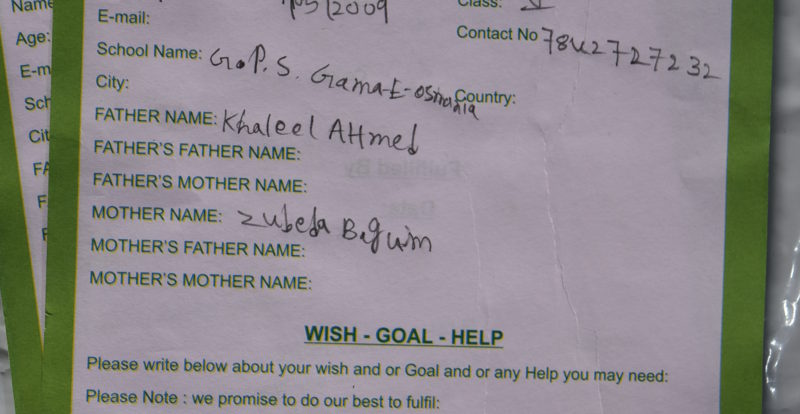 Name
Age:
E-m
Sch
Cit
FA
F
F
E-mail: /2009 Class:
Contact No 7842727232
School Name: G.P.S. Gama-E-osmania
City: Country:
FATHER NAME: Khaleel AHmed
FATHER'S FATHER NAME:
FATHER'S MOTHER NAME:
MOTHER NAME: Zubeda Beguim
MOTHER'S FATHER NAME:
MOTHER'S MOTHER NAME:
WISH - GOAL - HELP
Please write below about your wish and or Goal and or any Help you may need:
Please Note : we promise to do our best to fulfil: